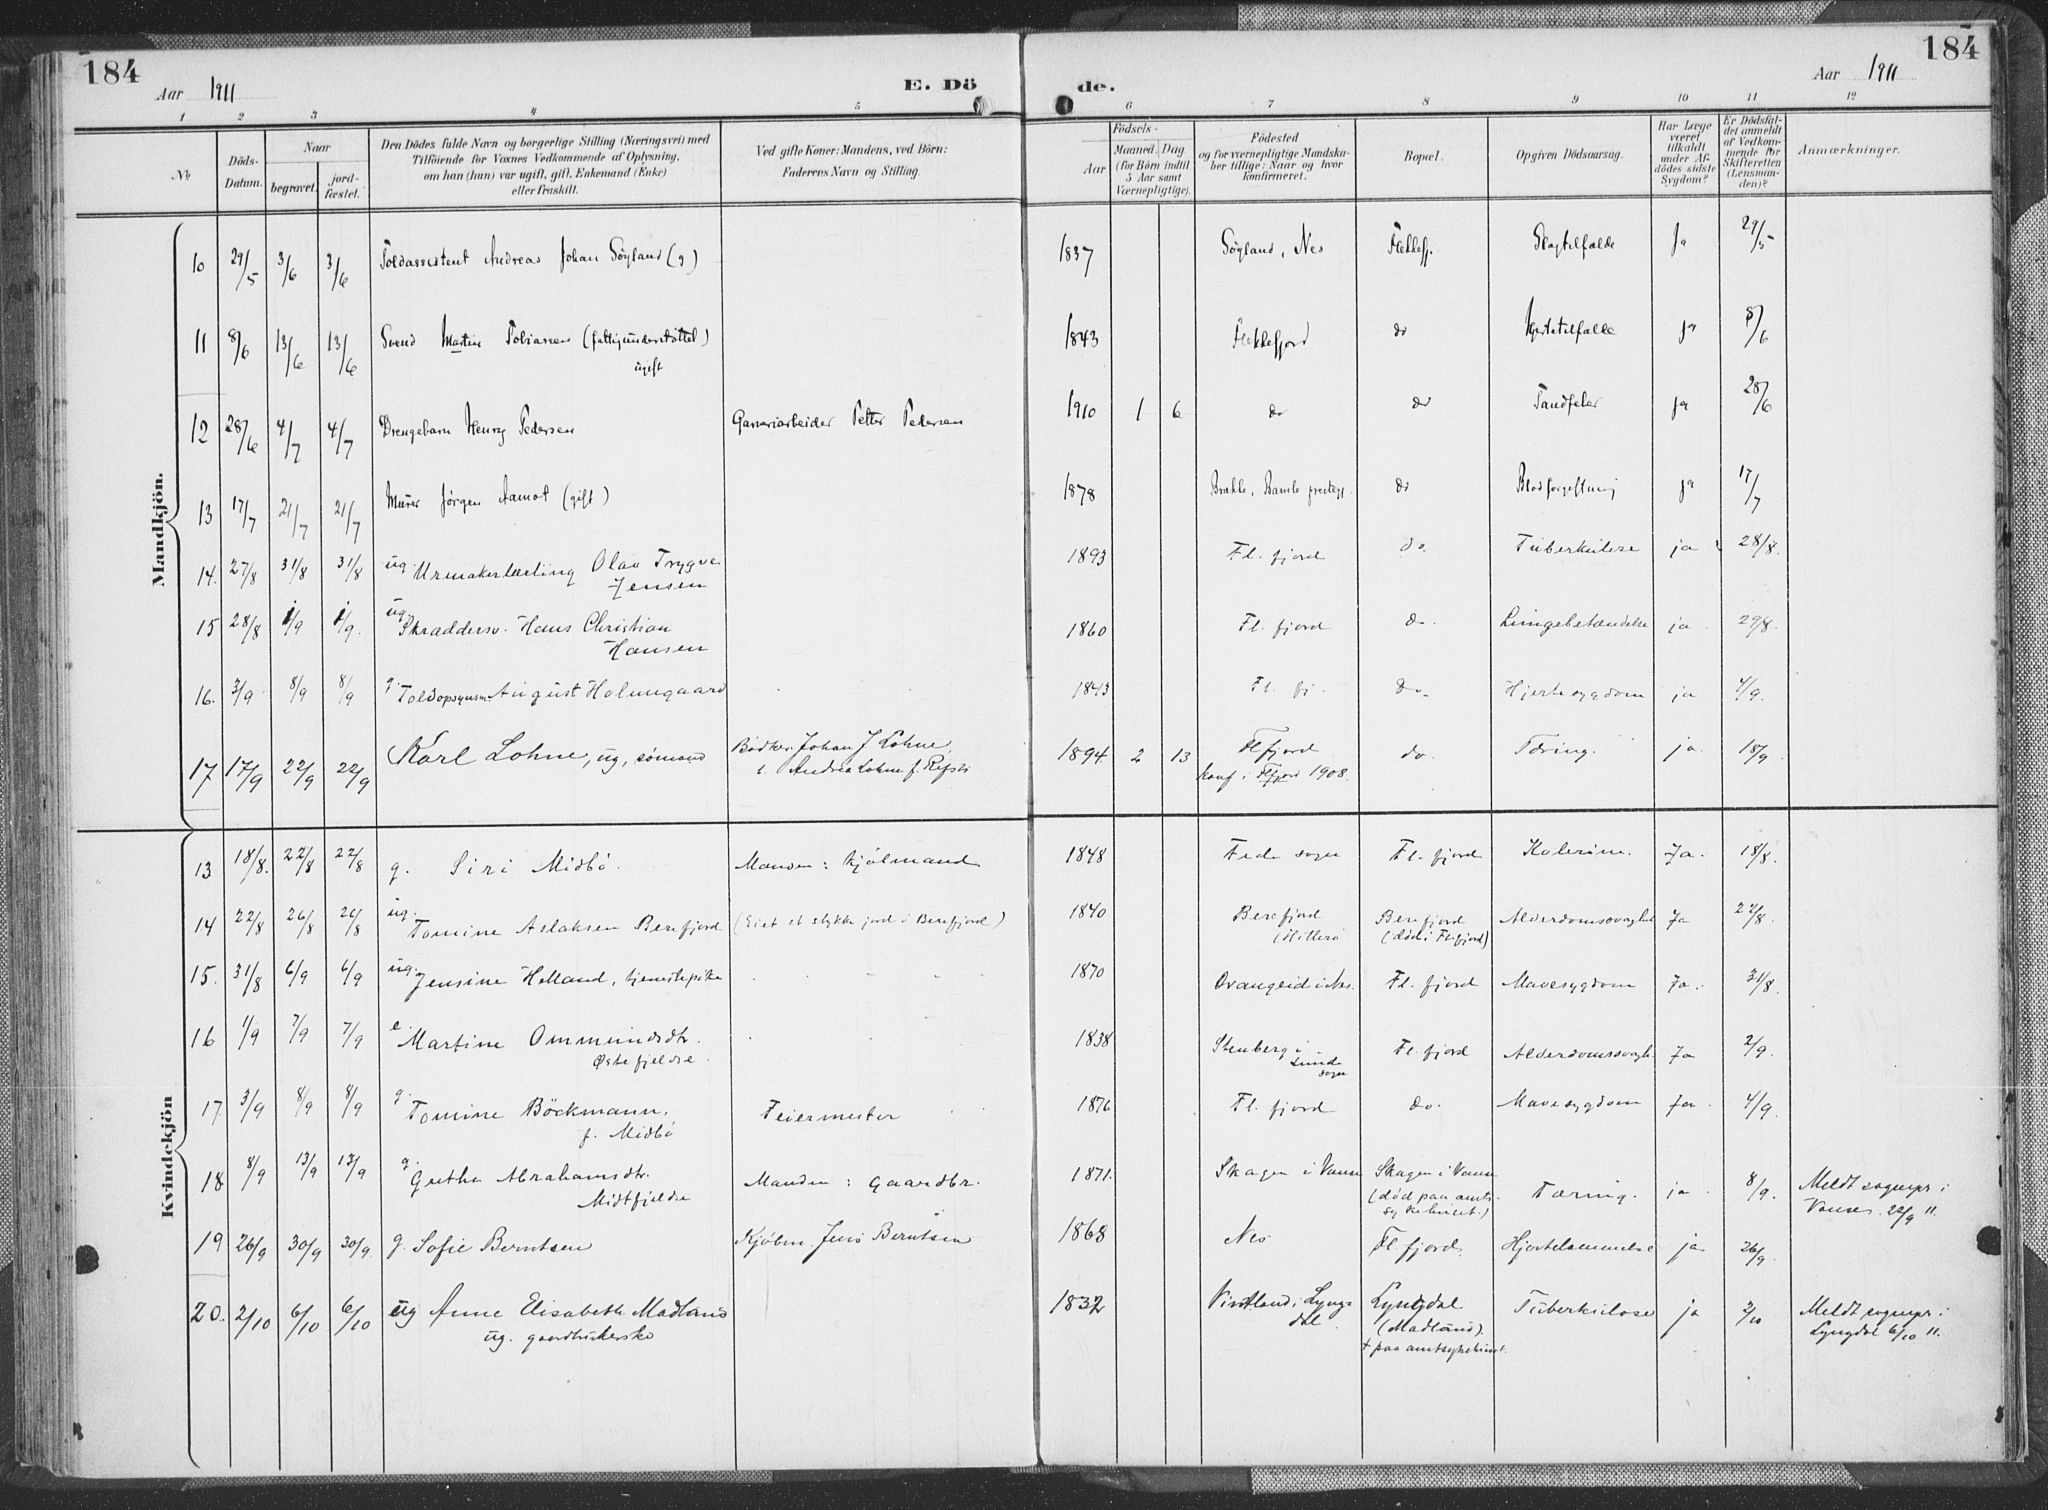 184
Aar 1911
E. Dö
de.
Aar 1911
184
1 2 3 4 5 6 7 8 9 10 11 12
No
Döds-Datum.
Naar
begravet.
jord-fæstet.
Den Dödes fulde Navn og borgerlige Stilling (Næringsvei) med
Tilföiende for Voxnes Vedkommende af Oplysning.
om han (hun) var ugift, gift, Enkemand (Enke)
eller fraskilt.
Ved gifte Koner: Mandens, ved Börn:
Faderens Navn og Stilling.
Födsels-
Aar
Maaned. Dag.
(for Börn indtil
5 Aar samt
Værnepligtige).
Födested
og for værnepligtige Mandska-
ber tillige: Naar og hvor
konfirmeret.
Bopæl.
Opgiven Dödsaarsag.
Har Læge
været
tilkaldt
under Af-
dödes sidste
Sygdom?
Er Dödsfal-
det anmeldt
af Vedkom-
mende for
Skifteretten
(Lensman-
den)?
Anmærkninger.
Mandkjön.
10 29/5 3/6 3/6 Toldassistent Andreas Johan Söyland (g) 1837 Söyland, Nes Flekkefj. Slagtilfælde Ja 29/5
11 8/6 13/6 13/6 Svend Martin Tobiassen (fattigunderstöttet) 1843 Flekkefjord do Hjertetilfælde ja 8/6
ugift
12 28/6 4/7 4/7 Drengebarn Henry Pedersen Garveriarbeider Petter Pedersen 1910 1 6 do do Tandfeber ja 28/6
13 17/7 21/7 21/7 Murer Jörgen Aamot (gift) 1878 Brække, Bamle prestegj. do Blodforgiftning ja 17/7
14. 27/8 31/8 31/8 ug. Urmakerlærling Olav Trygve 1893 Fl. fjord do. Tuberkulose ja 28/8.
Jensen
15 28/8 1/9 1/9. ug. Skraddersv. Hans Christian 1860 Fl. fjord do. Lungebetændelse ja 29/8.
Hansen
16. 3/9 8/9 8/9 g. Toldopsynsm. August Holmegaard 1843 Fl. fj. do. Hjertesygdom ja 4/9.
17 17/9 22/9 22/9 Karl Lohne, ug, sømand Bødker Johan J Lohne, 1894 2 13 Flfjord do. Tæring. ja. 18/9.
Andrea Lohne f. Refsti konf i Flfjord 1908.
Kvindekjön
13 18/8. 22/8 22/8 g. Siri Midbö. Manden: Kjølmand 1848 Feda sogn Fl. fjord Kolerine. Ja. 18/8.
14 22/8 26/8 26/8 ug. Tomine Aslaksen Berefjord (Eiet et stykke jord i Berefjord) 1840 Berefjord Berefjord Alderdomssvaghet Ja 22/8.
(Hitterö (död i Flfjord)
15. 31/8 6/9 6/9 ug. Jensine Helland, tjenestepike 1870 Drangeid i Nes. Fl. fjord Mavesygdom Ja. 31/8.
16 1/9 7/9 7/9 e. Martine Ommundsdtr. 1838 Stenberg i Fl. fjord Alderdomssvagh. Ja 2/9.
Østefjeldse. Lunde
sogn
17 3/9 8/9 8/9 g. Tomine Böckmann, Feiermester 1876 Fl. fjord do. Mavesygdom Ja 4/9.
f. Midbö
18 8/9 13/9 13/9 g. Grethe Abrahamsdtr. Manden: gaardbr. 1871. Skagen i Vanse Skagen i Vanse Tæring. ja 8/9. Meldt sognepr i
Midtfjeldse (död paa amts- Vanse. 22/9 11.
sykehuset.)
19 26/9 30/9 30/9. g. Sofie Berntsen Kjøbm. Jens Berntsen 1868 Nes Fl. fjord. Hjertelammelse ja 26/9.
20. 2/10 6/10 6/10 ug Anne Elisabeth Madland 1832 Vintland i Lyng- Lyngdal Tuberkulose ja 2/10 Meldt sognepr i
ug. gaardbrukerske dal. (Madland). Lyngdal 6/10 11.
+ paa amtsykehuset.